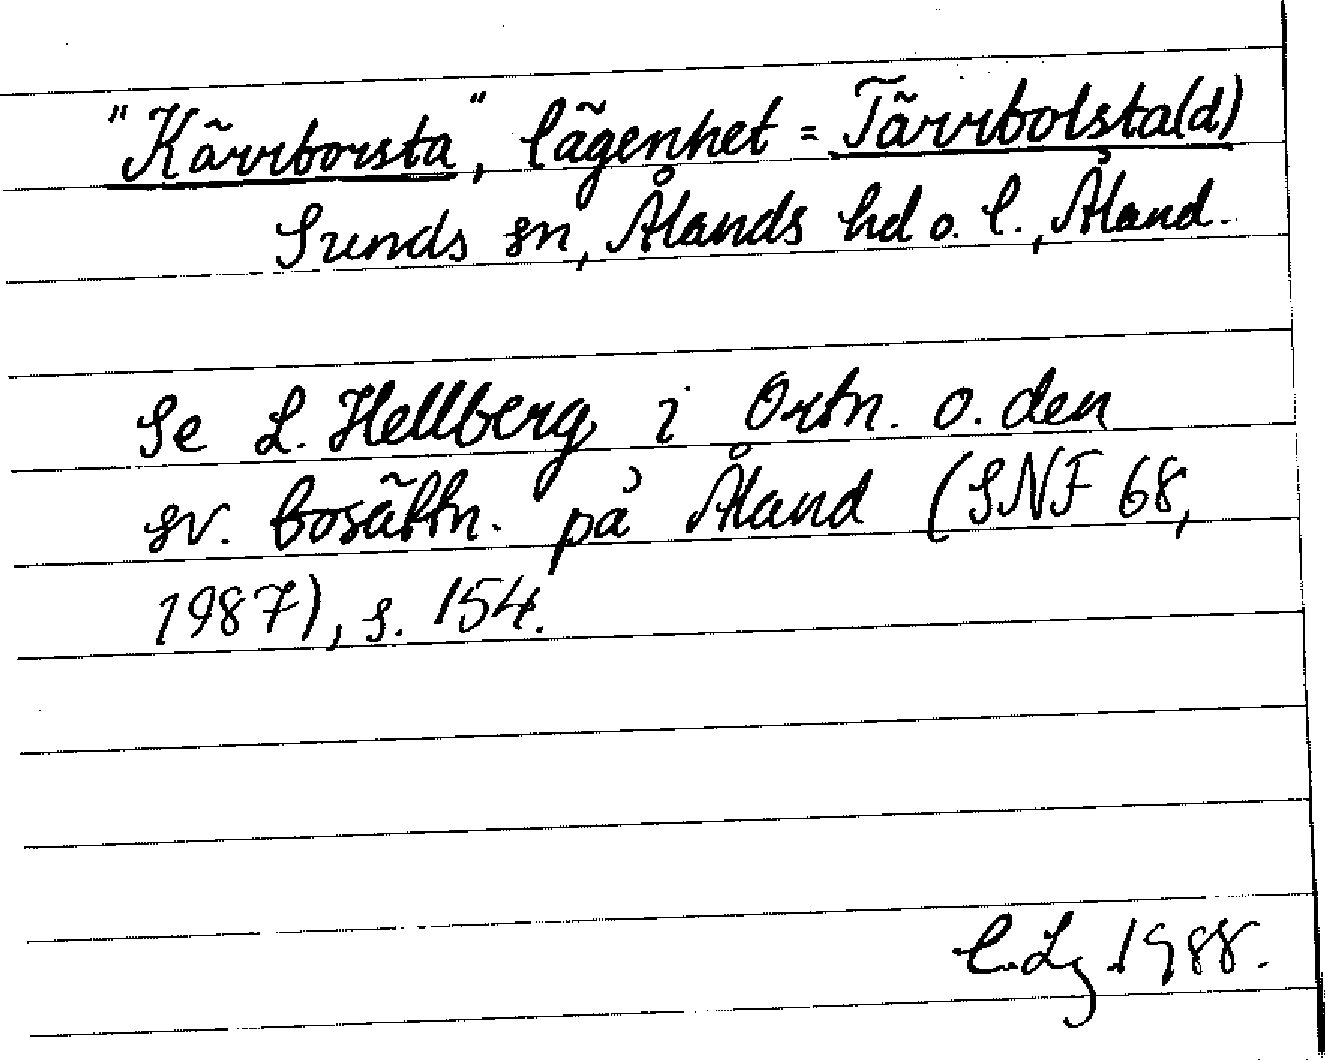 "Kärrborsta", lägenhet = Tärrbolsta(d)
Sunds sn, Ålands hd o. l., Åland.
Se L. Hellberg i Ortn. o. den
sv. bosättn. på Åland (SNF 68,
1987), s. 154.
C. Lg 1988.